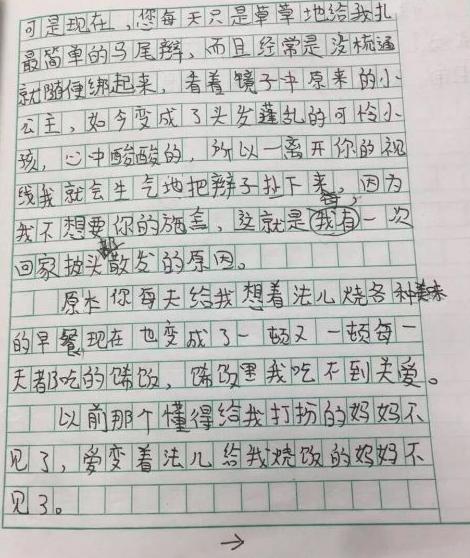 可是现在，您每天只是草草地给我扎
最简单的马尾辫，而且经常是没梳通
就随便绑起来，看着镜子中原来的小
公主，如今变成了头发蓬乱的可怜小
孩，心中酸酸的，所以一离开你的视
线我就会生气地把辫子扯下来，因为
我不想要你的施舍，这就是我有每一次
回家披头散发的原因。
原本你每天给我想着法儿烧各种美味
的早餐现在也变成了一顿又一顿每一
天都吃的稀饭，稀饭里我吃不到关爱。
以前那个懂得给我打扮的妈妈不
见了，爱变着法儿给我烧饭的妈妈不
见了。
→